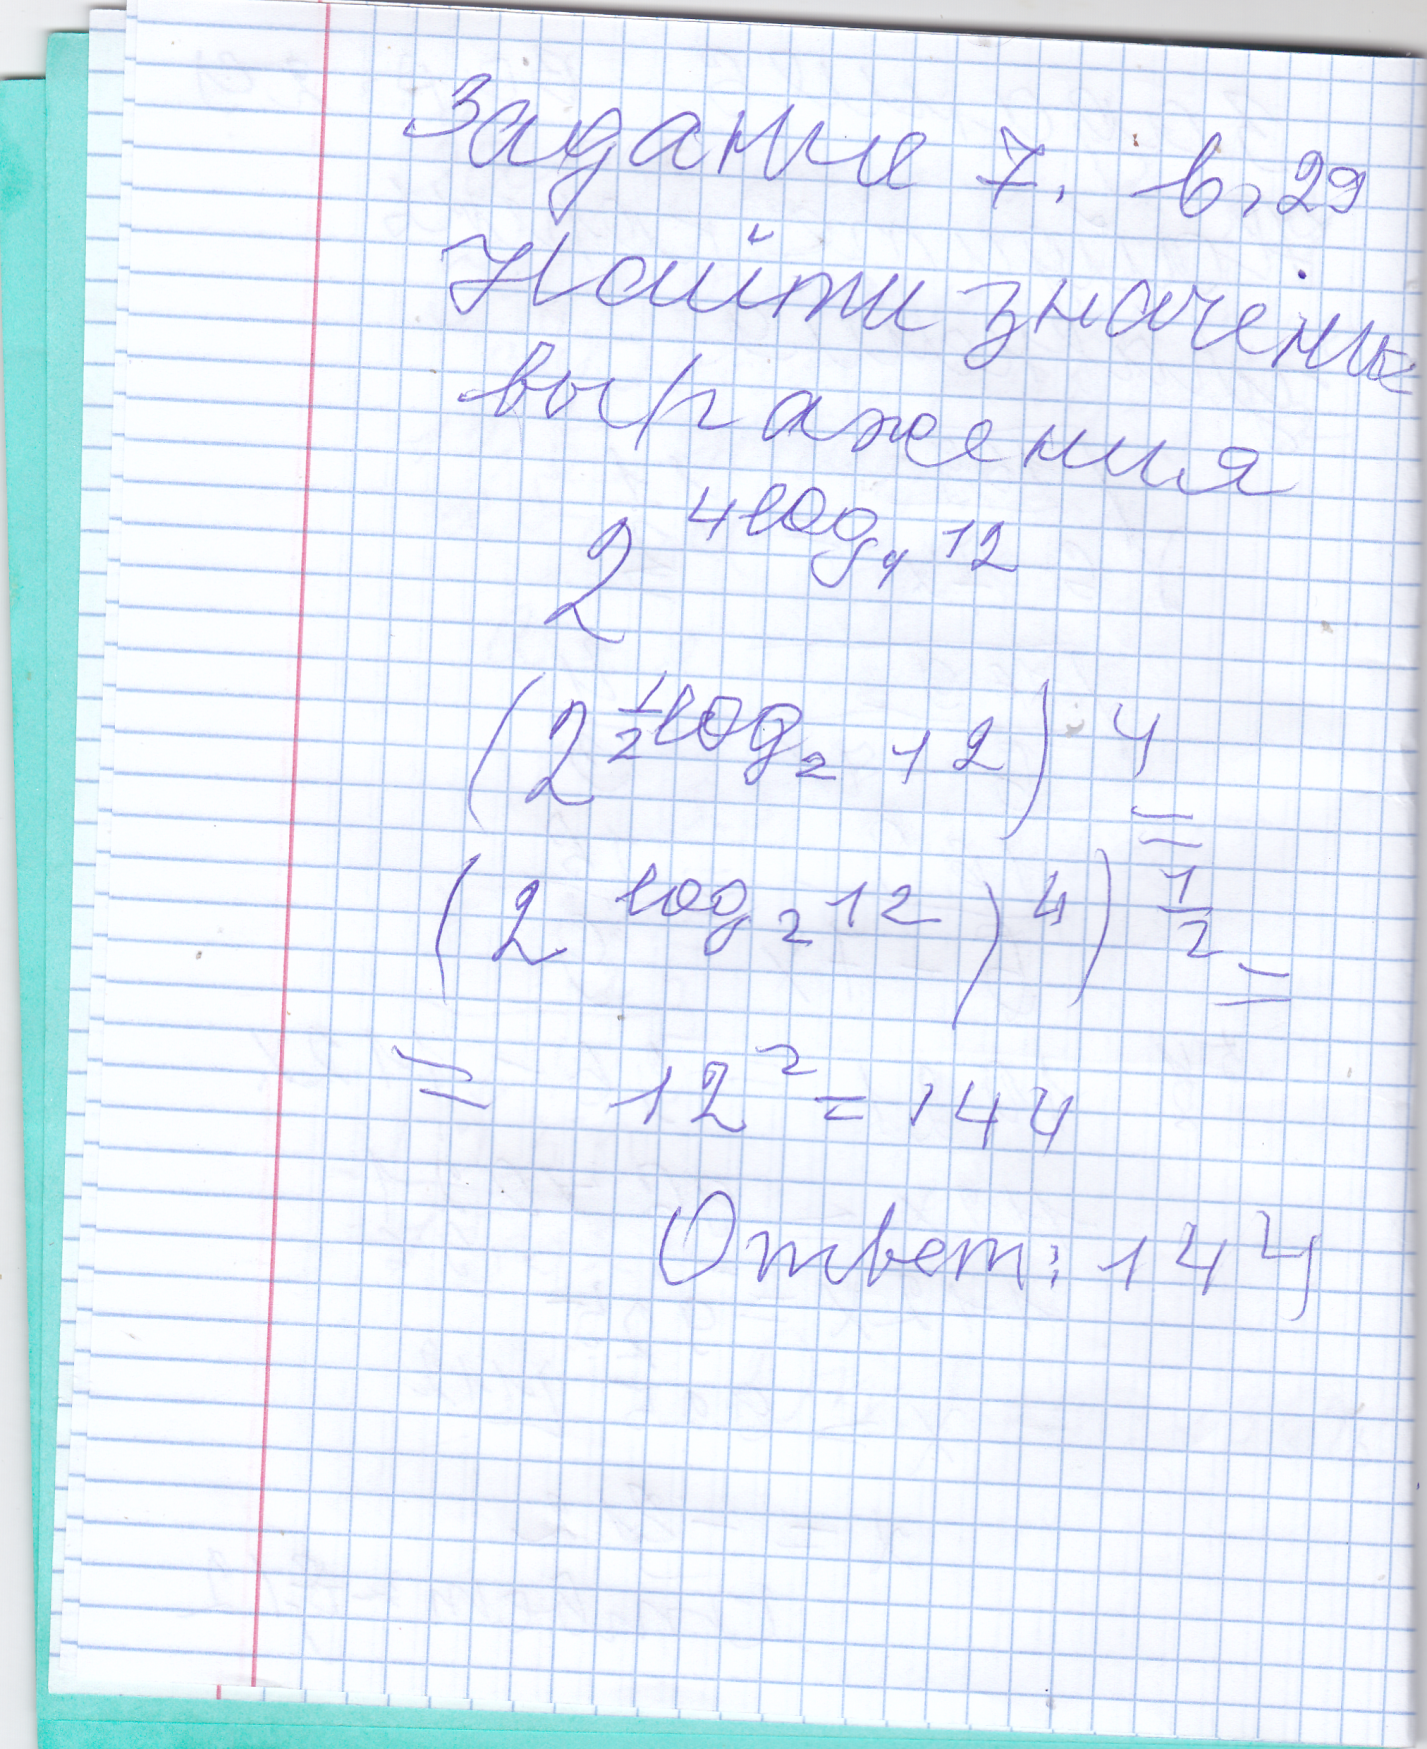 Задание 7. в. 29
Найти значение
выражения
2^{4log_4 12}
(2^{\frac{1}{2}log_2 12})^4 =
(2^{log_2 12})^4)^{\frac{1}{2}} =
= 12^2 = 144
Ответ: 144